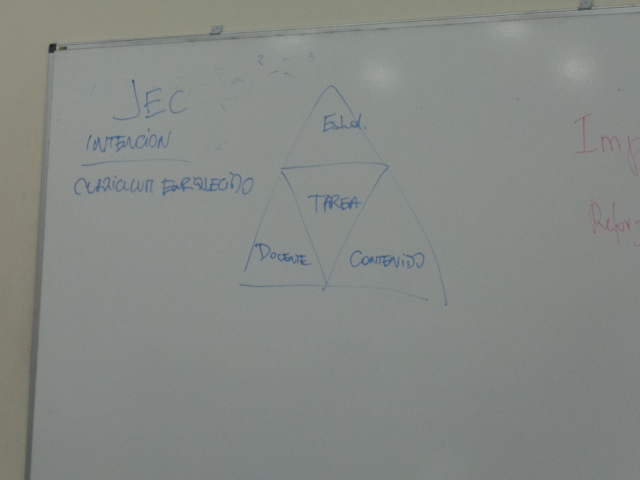 JEC
INTENCIÓN
CURRICULUM ENRIQUECIDO
2 3
Estud.
TAREA
DOCENTE
CONTENIDO
Imp
Reforz